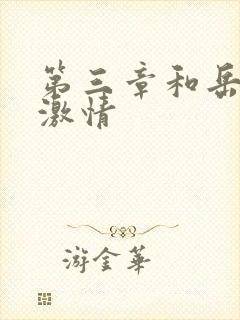 第三章和岳
激情
游金華